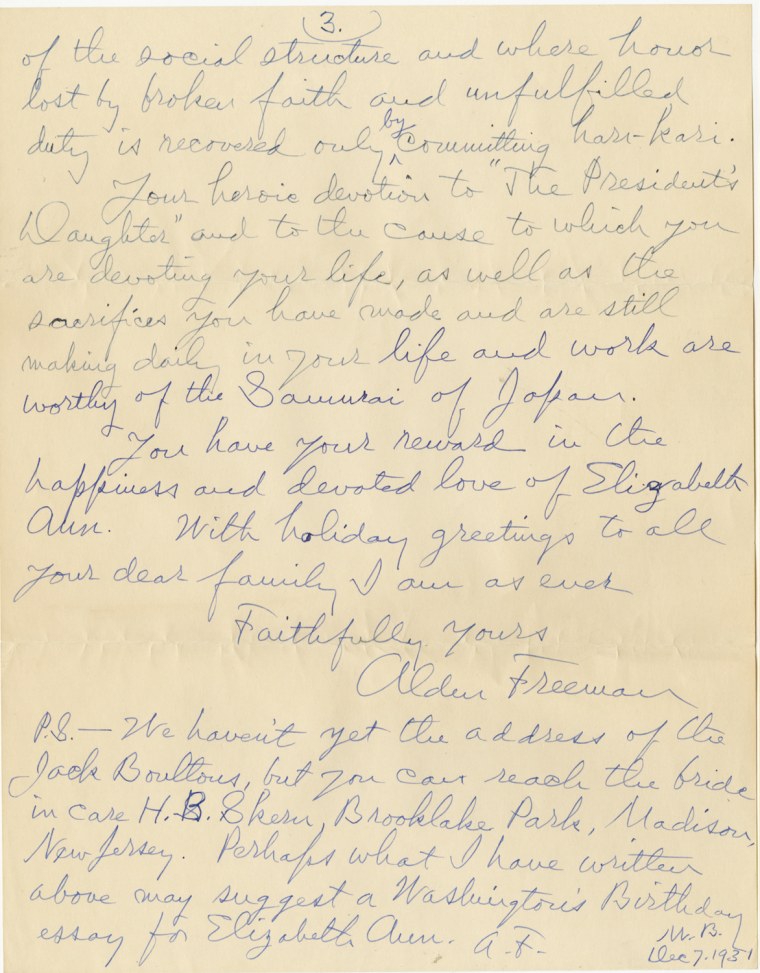 3.
of the social structure and where honor
lost by broken faith and unfulfilled
duty is recovered only by committing hari-kari.
Your heroic devotion to "The President's
Daughter" and to the cause to which you
are devoting your life, as well as the
sacrifices you have made and are still
making daily in your life and work are
worthy of the Samurai of Japan.
You have your reward in the
happiness and devoted love of Elizabeth
Ann. With holiday greetings to all
your dear family I am as ever
Faithfully yours
Alden Freeman
P.S.— We haven't yet the address of the
Jack Boultons, but you can reach the bride
in care H.B. Skern, Brooklake Park, Madison,
New Jersey. Perhaps what I have written
above may suggest a Washington's Birthday
essay for Elizabeth Ann. A.F.
M.B.
Dec 7. 1931